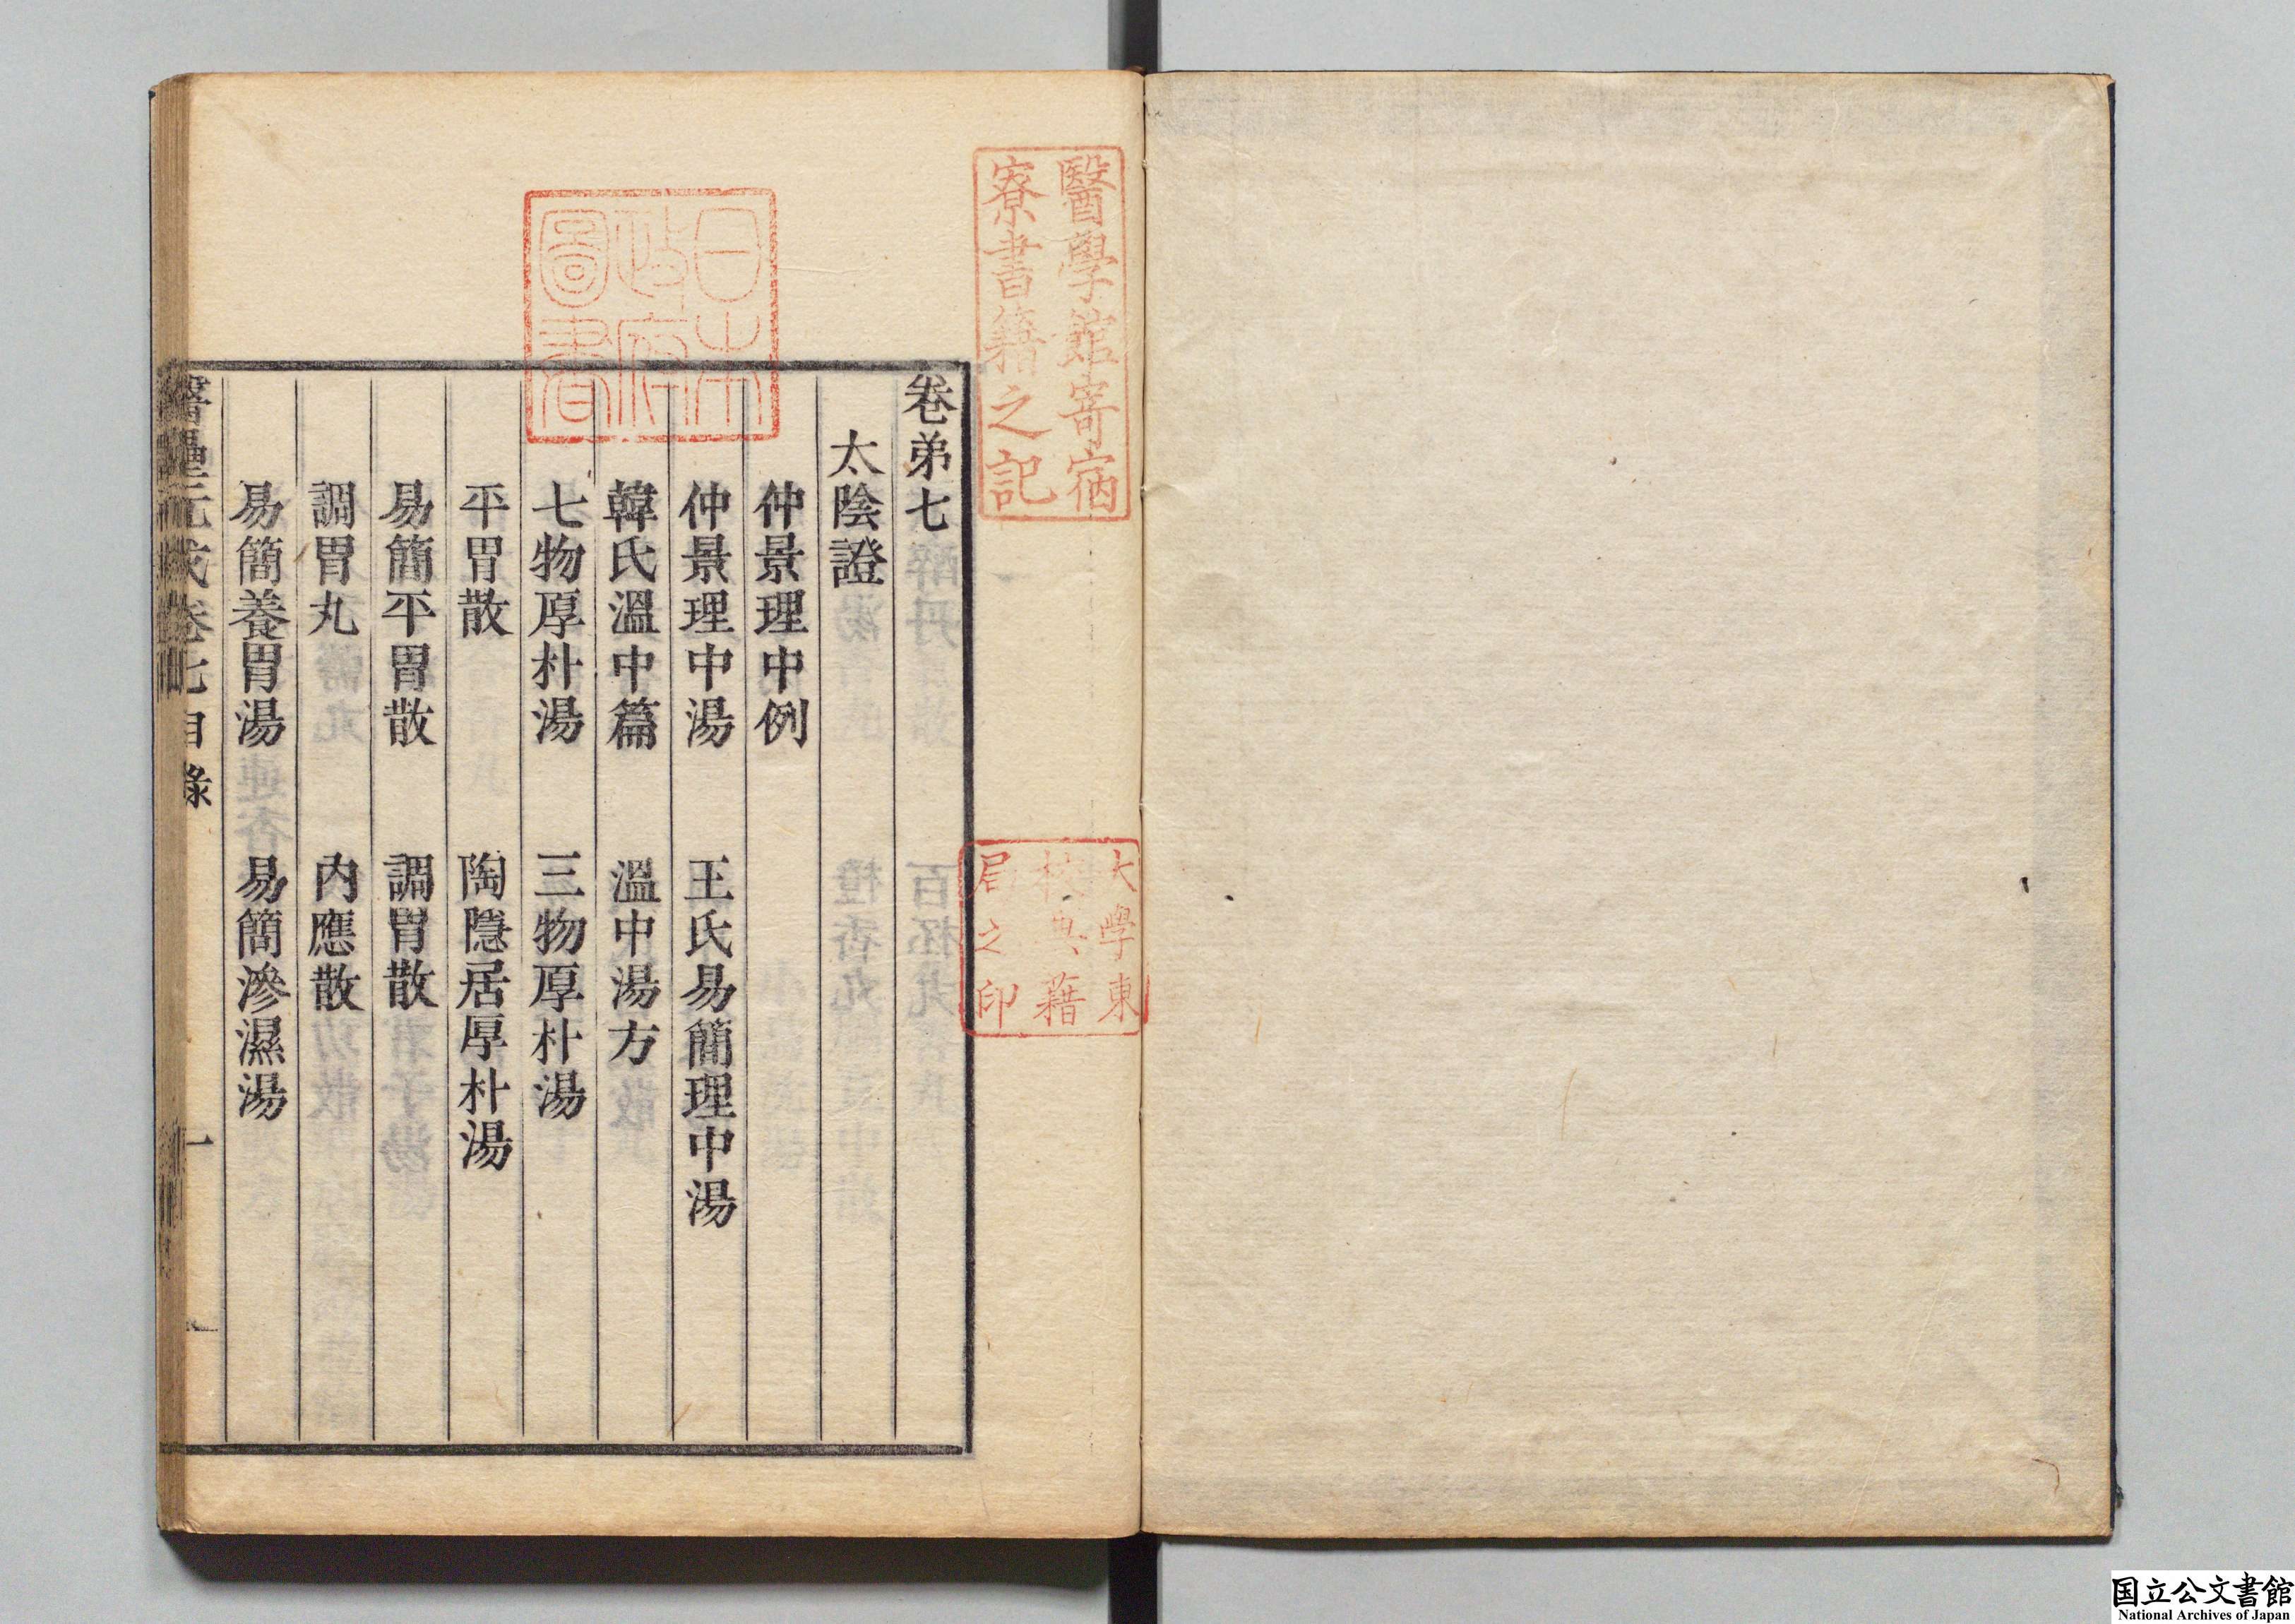 醫學館寄宿
寮書籍之記
大學東
校典籍
局之印
日本
政府
圖書
卷弟七
太陰證
仲景理中例
仲景理中湯　王氏易簡理中湯
韓氏溫中篇　溫中湯方
七物厚朴湯　三物厚朴湯
平胃散　陶隱居厚朴湯
易簡平胃散　調胃散
調胃丸　內應散
易簡養胃湯　易簡滲濕湯
醫壘元戎卷七目錄　一
国立公文書館
National Archives of Japan